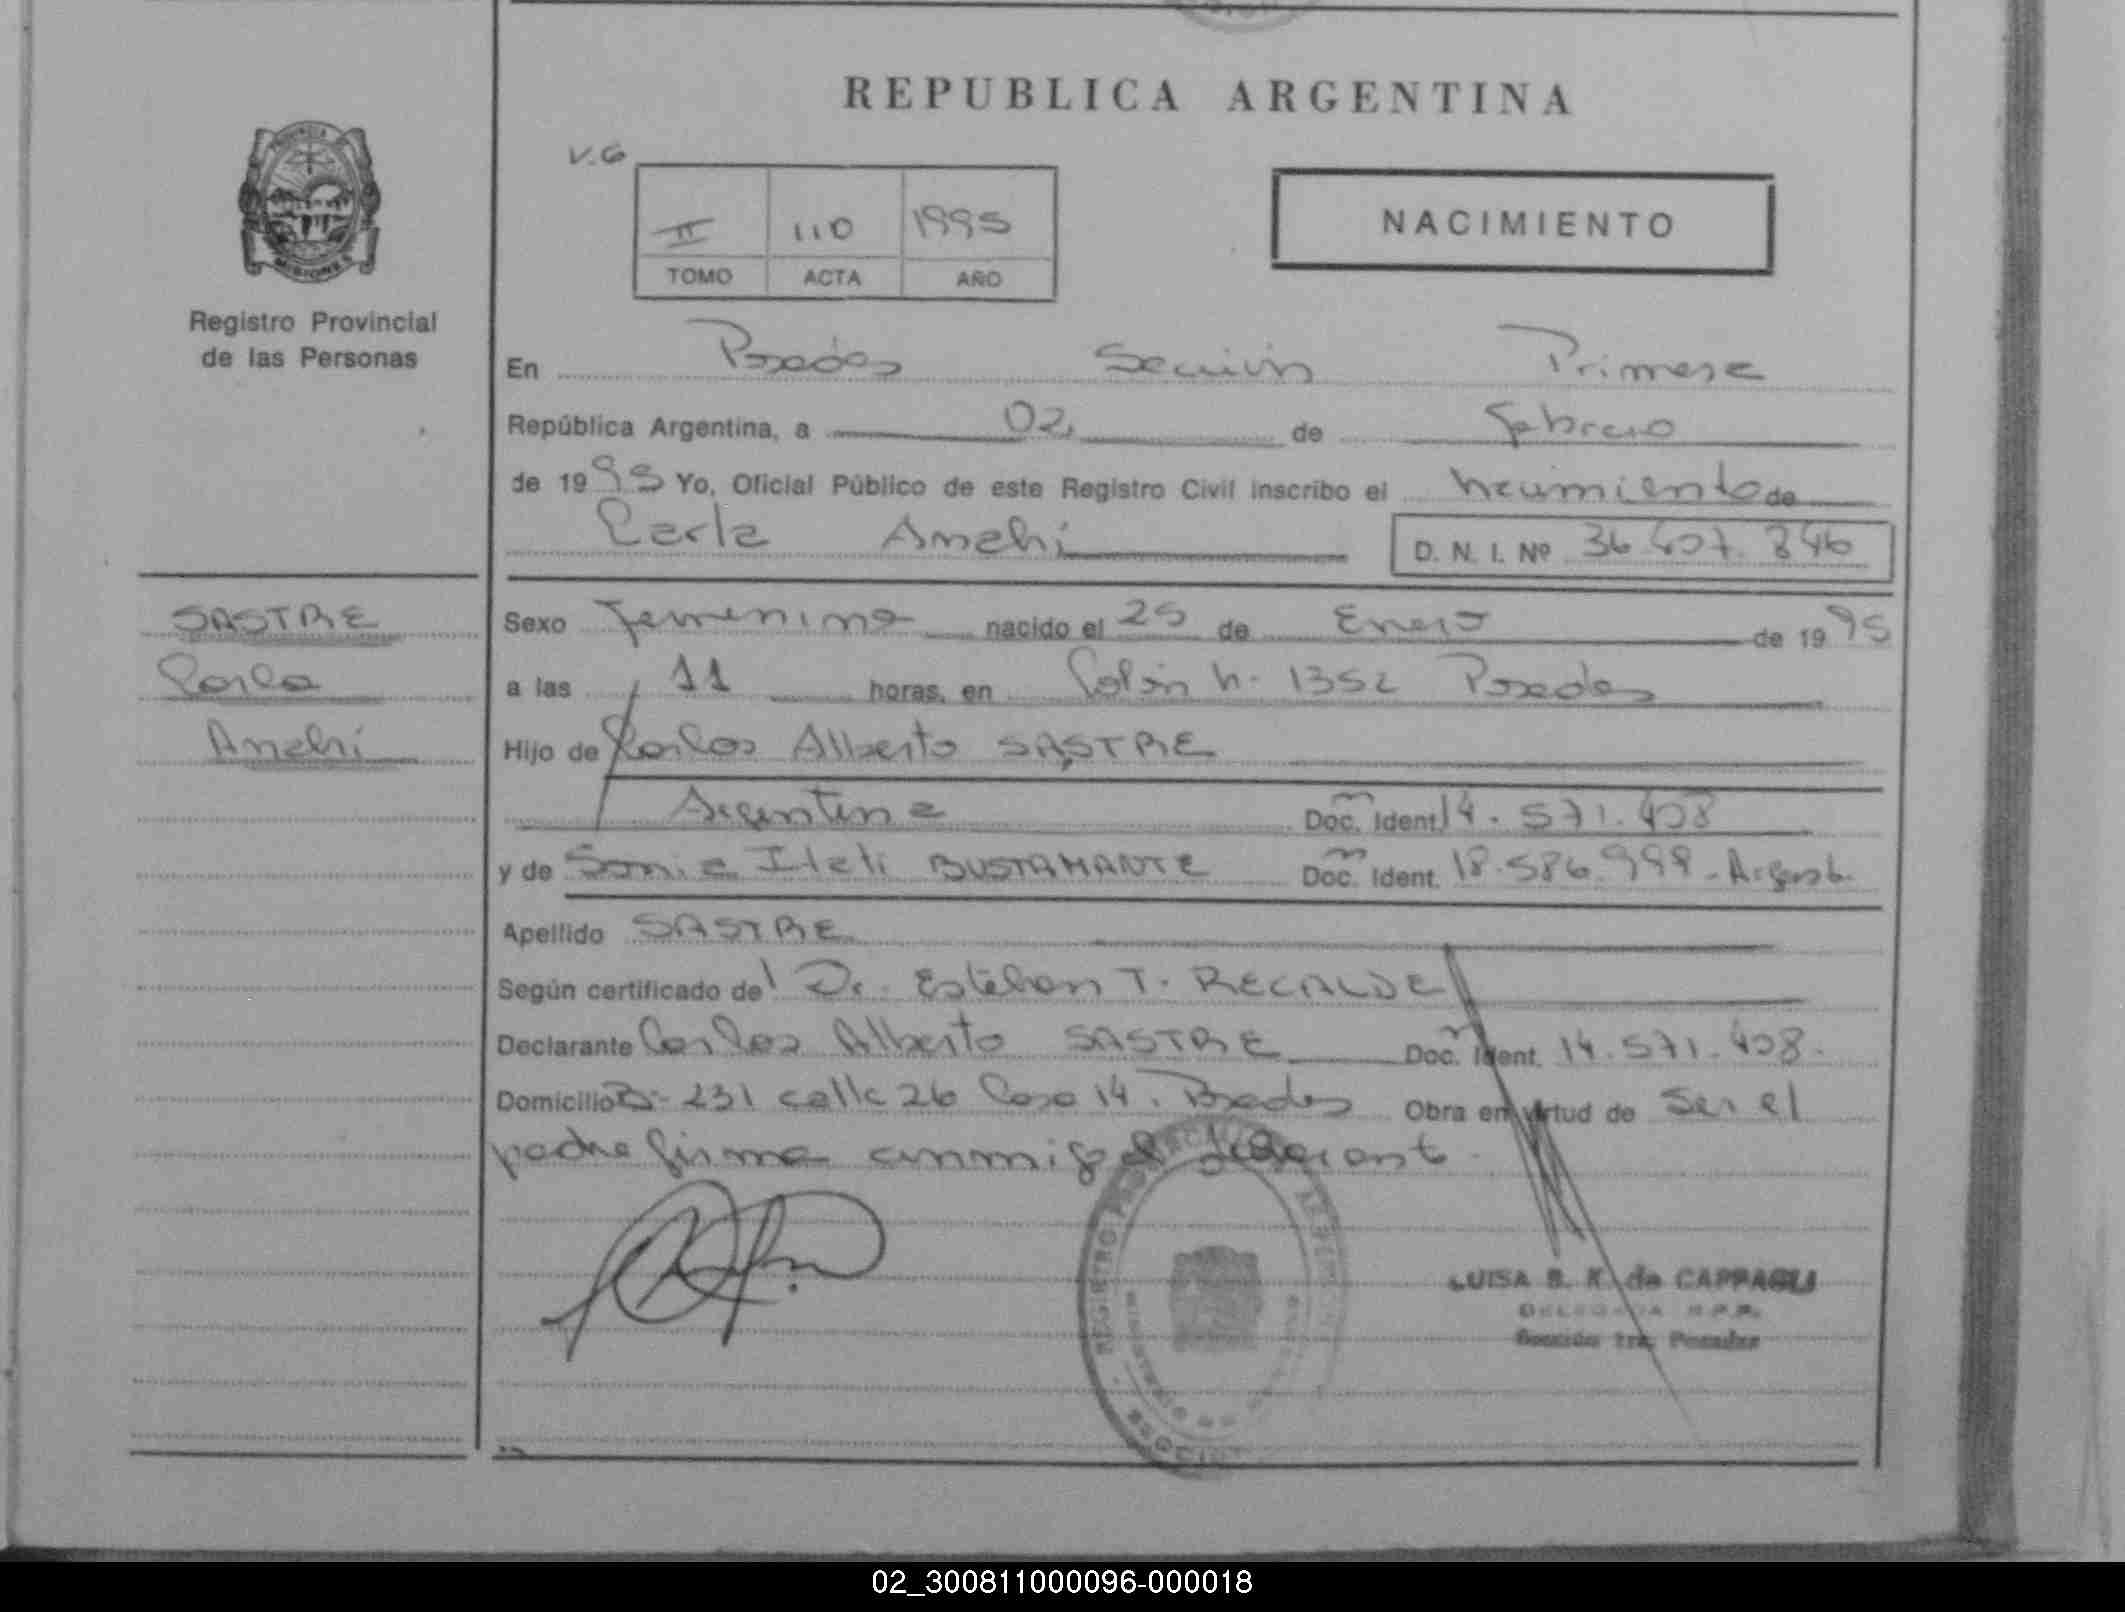 REPUBLICA ARGENTINA
V.G
II 110 1995
TOMO ACTA AÑO
NACIMIENTO
PROVINCIA
MISIONES
Registro Provincial
de las Personas
En Posadas Sección Primera
República Argentina, a 02 de febrero
de 1995 Yo, Oficial Público de este Registro Civil inscribo el nacimiento de
Carla Anahi D. N. I. Nº 36.407.846
SASTRE
Carla
Anahí
Sexo femenino nacido el 25 de Enero de 1995
a las 11 horas, en Colón n. 1352 Posadas
Hijo de Carlos Alberto SASTRE
Argentina Doc. Ident. 14.571.408
y de Sonia Itatí BUSTAMANTE Doc. Ident. 18.586.999 - Argent.
Apellido SASTRE
Según certificado del Dr. Esteban T. RECALDE
Declarante Carlos Alberto SASTRE Doc. Ident. 14.571.408.
Domicilio 231 calle 26 Casa 14. Posadas Obra en virtud de Ser el
padre firma conmigo el declarant.
REGISTRO
LUISA B. K. de CAPPAGLI
DELEGADA R.P.P.
Sección 1ra. Posadas
02_300811000096-000018